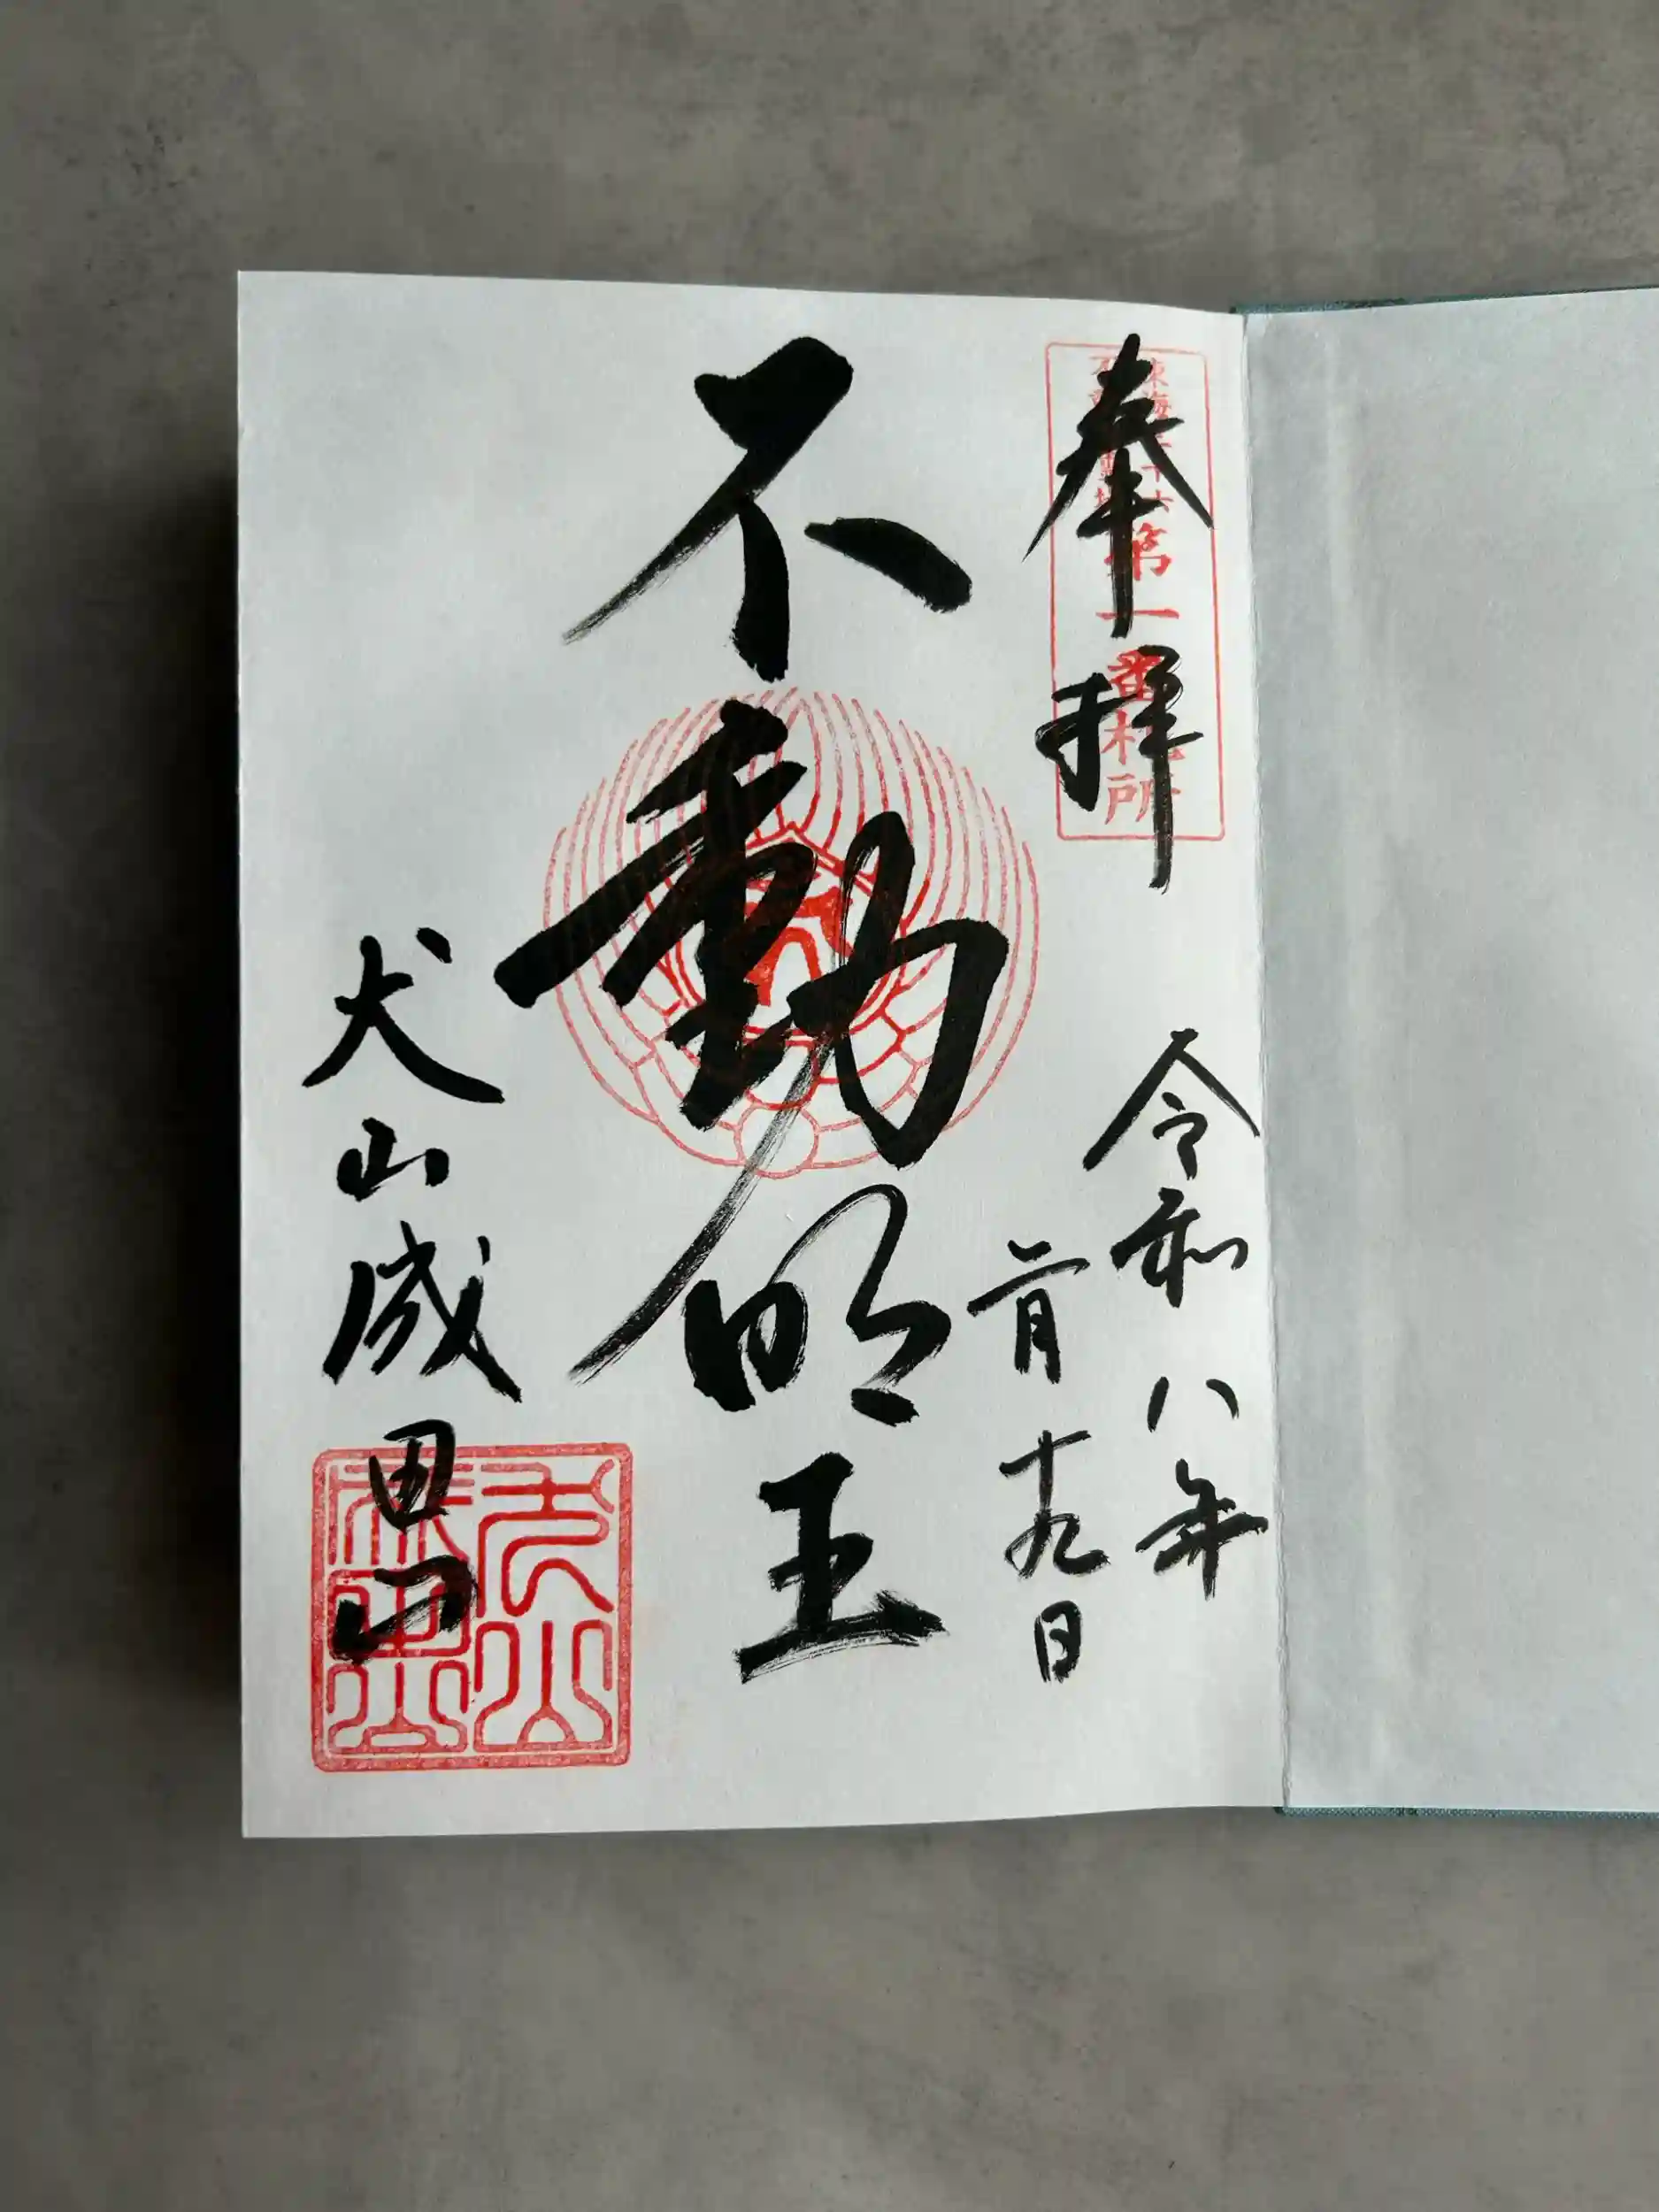 奉拝
第一番札所
令和八年
二月十九日
不動明王
犬山成田山